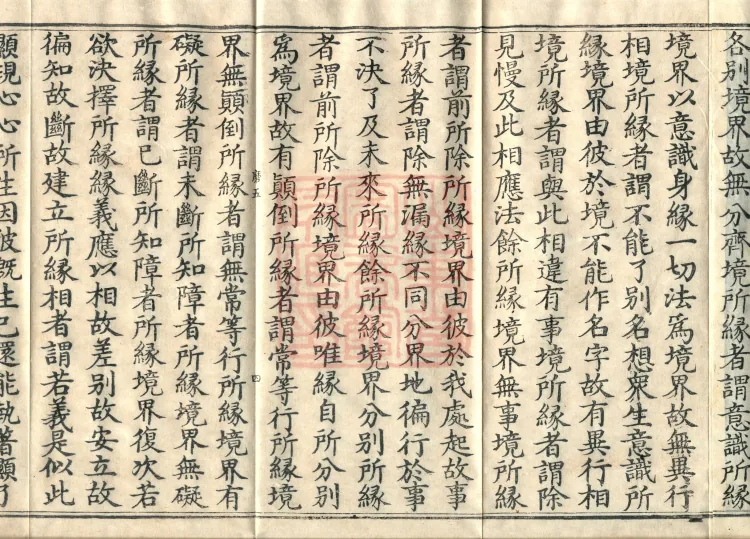 各別境界故無分齊境所緣者謂意識所緣
境界以意識身緣一切法爲境界故無異行
相境所緣者謂不能了別名想衆生意識所
緣境界由彼於境不能作名字故有異行相
境所緣者謂與此相違有事境所緣者謂除
見慢及此相應法餘所緣境界無事境所緣
者謂前所除所緣境界由彼於我處起故事
所緣者謂除無漏緣不同分界地徧行於事
不決了及未來所緣餘所緣境界分別所緣
者謂前所除所緣境界由彼唯緣自所分別
爲境界故有顚倒所緣者謂常等行所緣境
界無顚倒所緣者謂無常等行所緣境界有
礙所緣者謂未斷所知障者所緣境界無礙
所緣者謂已斷所知障者所緣境界復次若
欲決擇所緣緣義應以相故差別故安立故
徧知故斷故建立所緣相者謂若義是似此
顯現心心所生因彼旣生已還能執著顯了